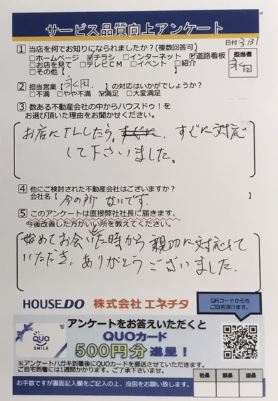 サービス品質向上アンケート
日付 3/31
担当者
永田
1 当店を何でお知りになられましたか？(複数回答可)
□ホームページ ☑チラシ □インターネット ☑道路看板
□お店を見て □テレビCM □イベント □紹介
□その他〔 〕
2 担当営業〔永田〕の対応はいかがでしょうか？
□不満 □やや不満 ☑満足 □大変満足
3 数ある不動産会社の中からハウスドゥ！を
お選び頂いた理由をお聞かせください。
お店にTELしたら、すぐに対応
して下さいました。
4 他にご検討された不動産会社はございますか？
会社名〔今の所 ないです。〕
5 このアンケートは直接弊社社長に届きます。
今後改善した方がいい所を教えてください。
始めてお会いした時から親切に対応して
いただき、ありがとうございました。
HOUSE DO 株式会社 エネチタ
QRコードからも
ご回答頂けます。
アンケートをお答えいただくと
QUOカード
500円分 進呈！
QUO
SMILE
※アンケートハガキ到着後にQUOカードを郵送させていただきます。
ご自宅到着には1週間かかります。ご了承くださいませ。
お手数ですが裏面記入欄をご記入の上、投函をお願い致します。
社長 部長 店長